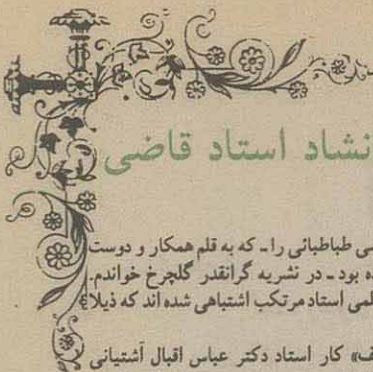 نشاد استاد قاضی
سی طباطبائی را ـ که به قلم همکار و دوست
ده بود ـ در نشریه گرانقدر گلچرخ خواندم.
لمی استاد مرتکب اشتباهی شده اند که ذیلاً
ف» کار استاد دکتر عباس اقبال آشتیانی